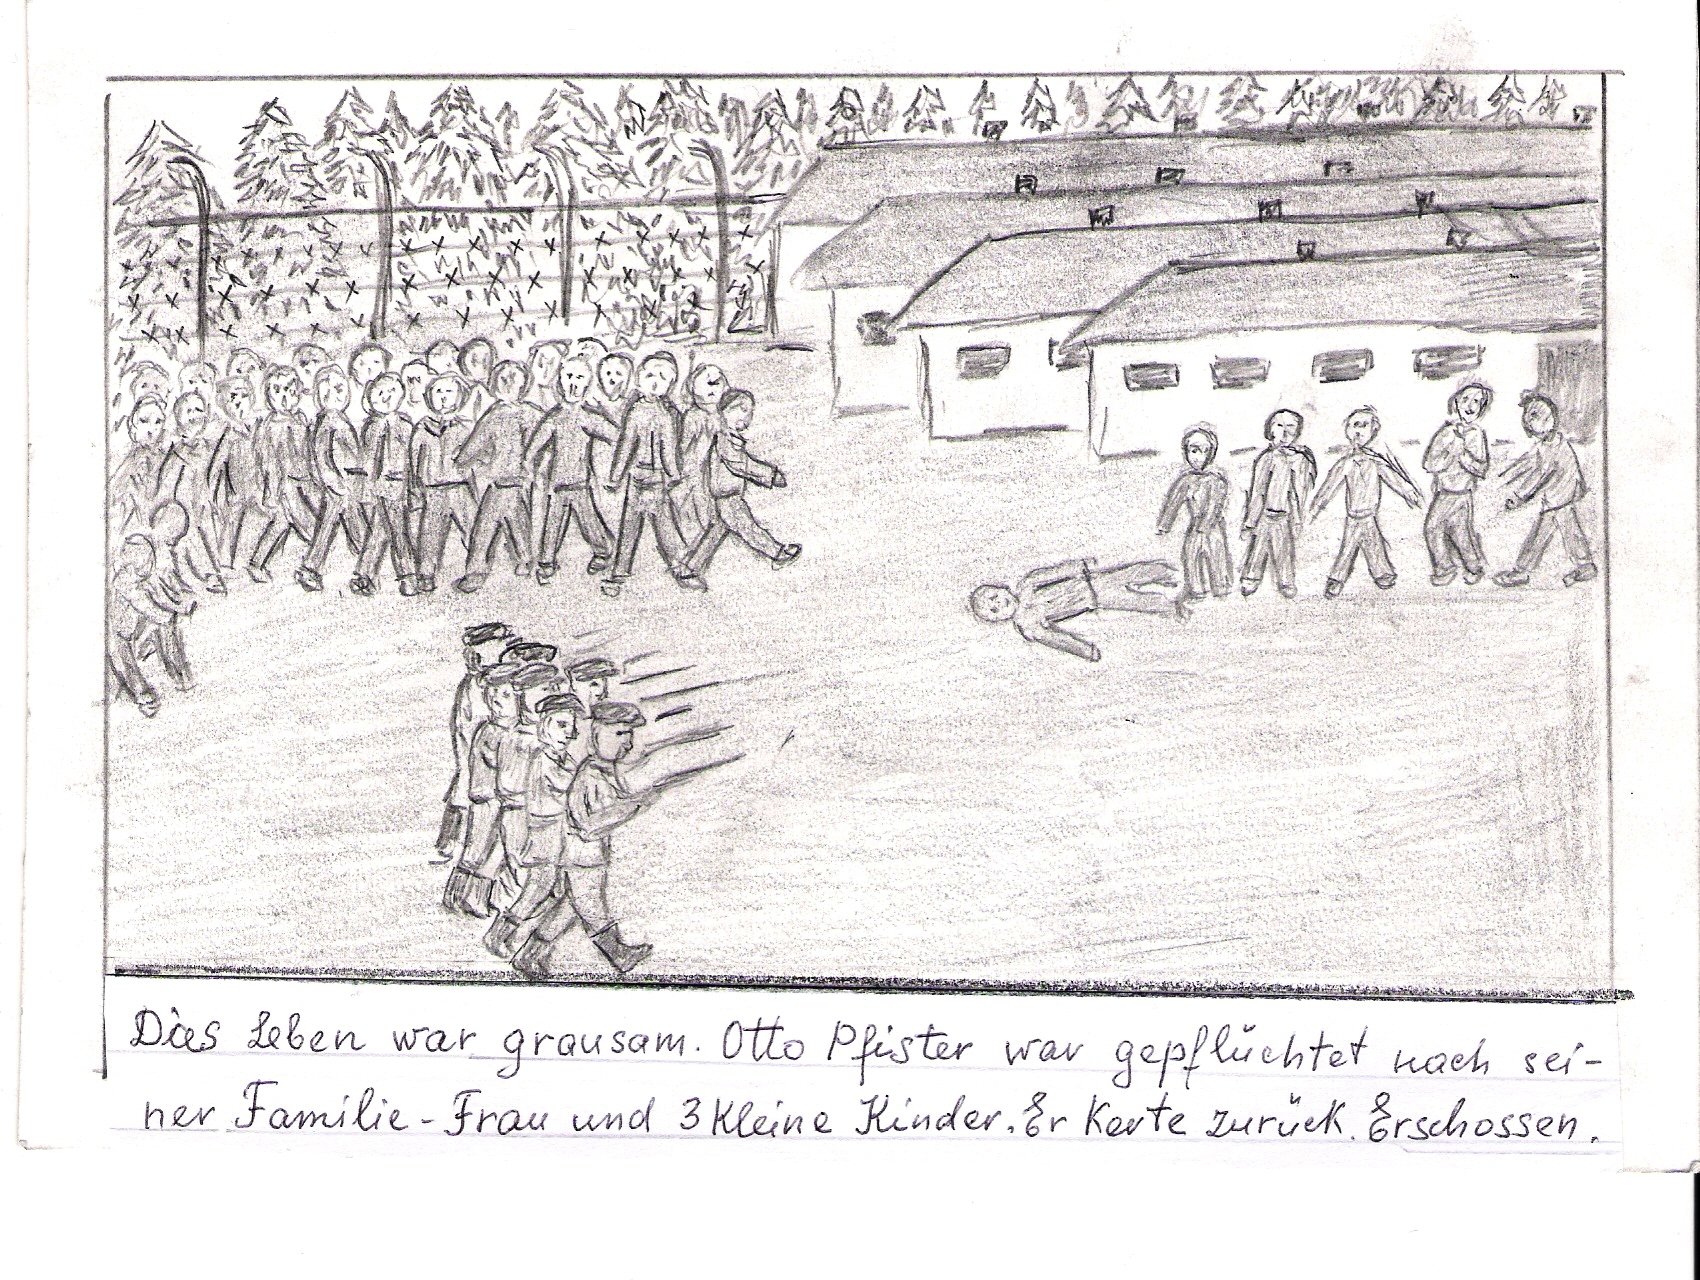 Dies Leben war grausam. Otto Pfister war gepflüchtet nach sei-
ner Familie - Frau und 3 Kleine Kinder. Er Kerte zurück. Erschossen.